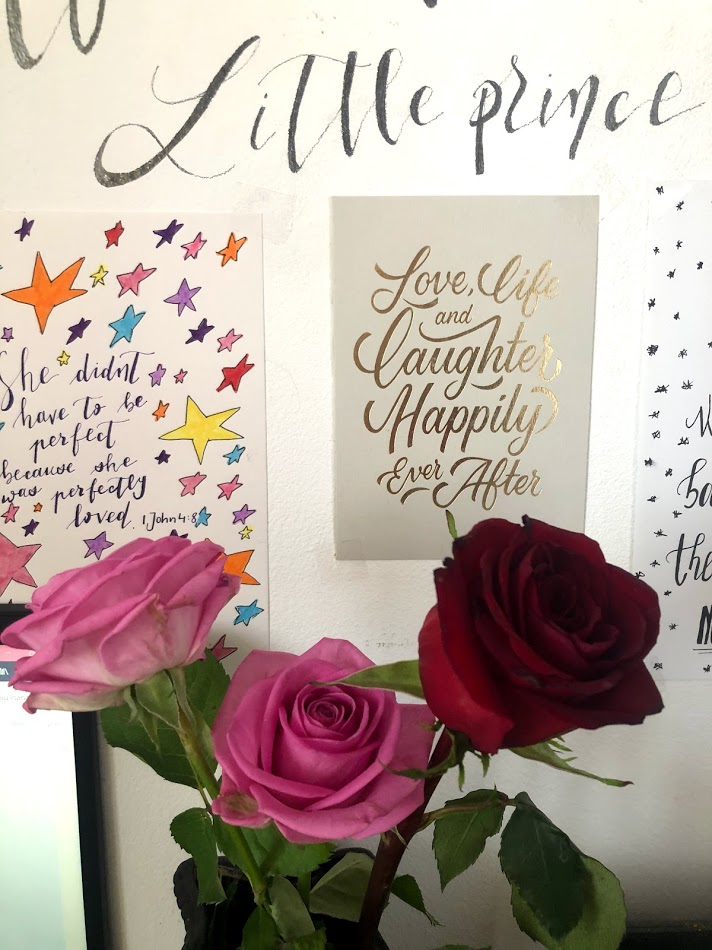 Little prince
She didnt
have to be
perfect
because she
was perfectly
loved. 1 John 4:8
Love, life
and
laughter
Happily
Ever After
the